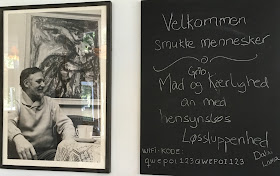 Velkommen
smukke mennesker
Grib
Mad og Kærlighed
an med
hensynsløs
Løssluppenhed
WIFI-KODE:
qwepoi123qwepoi123
Dalai
Lama